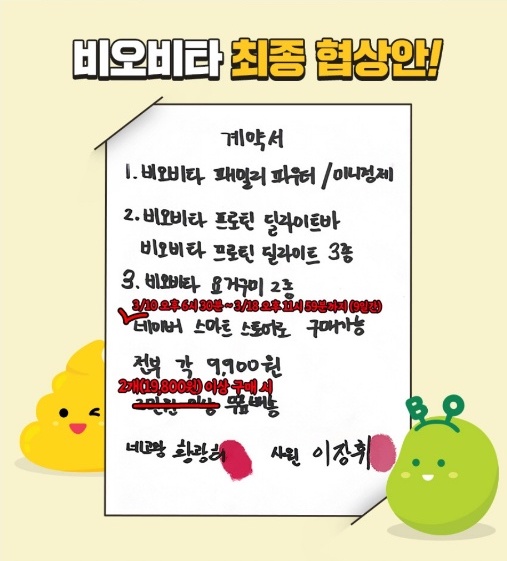 비오비타 최종 협상안!
계약서
1. 비오비타 패밀리 파우더/미니정제
2. 비오비타 프로틴 딜라이트바
비오비타 프로틴 딜라이트 3종
3. 비오비타 요거구미 2종
3/10 오후 6시 30분 ~ 3/18 오후 11시 59분까지 (9일간)
네이버 스마트 스토어로 구매가능
전부 각 9900원
2개(19,800원) 이상 구매 시
2만원 이상 무료배송
네고왕 황광희 사원 이장휘
BO